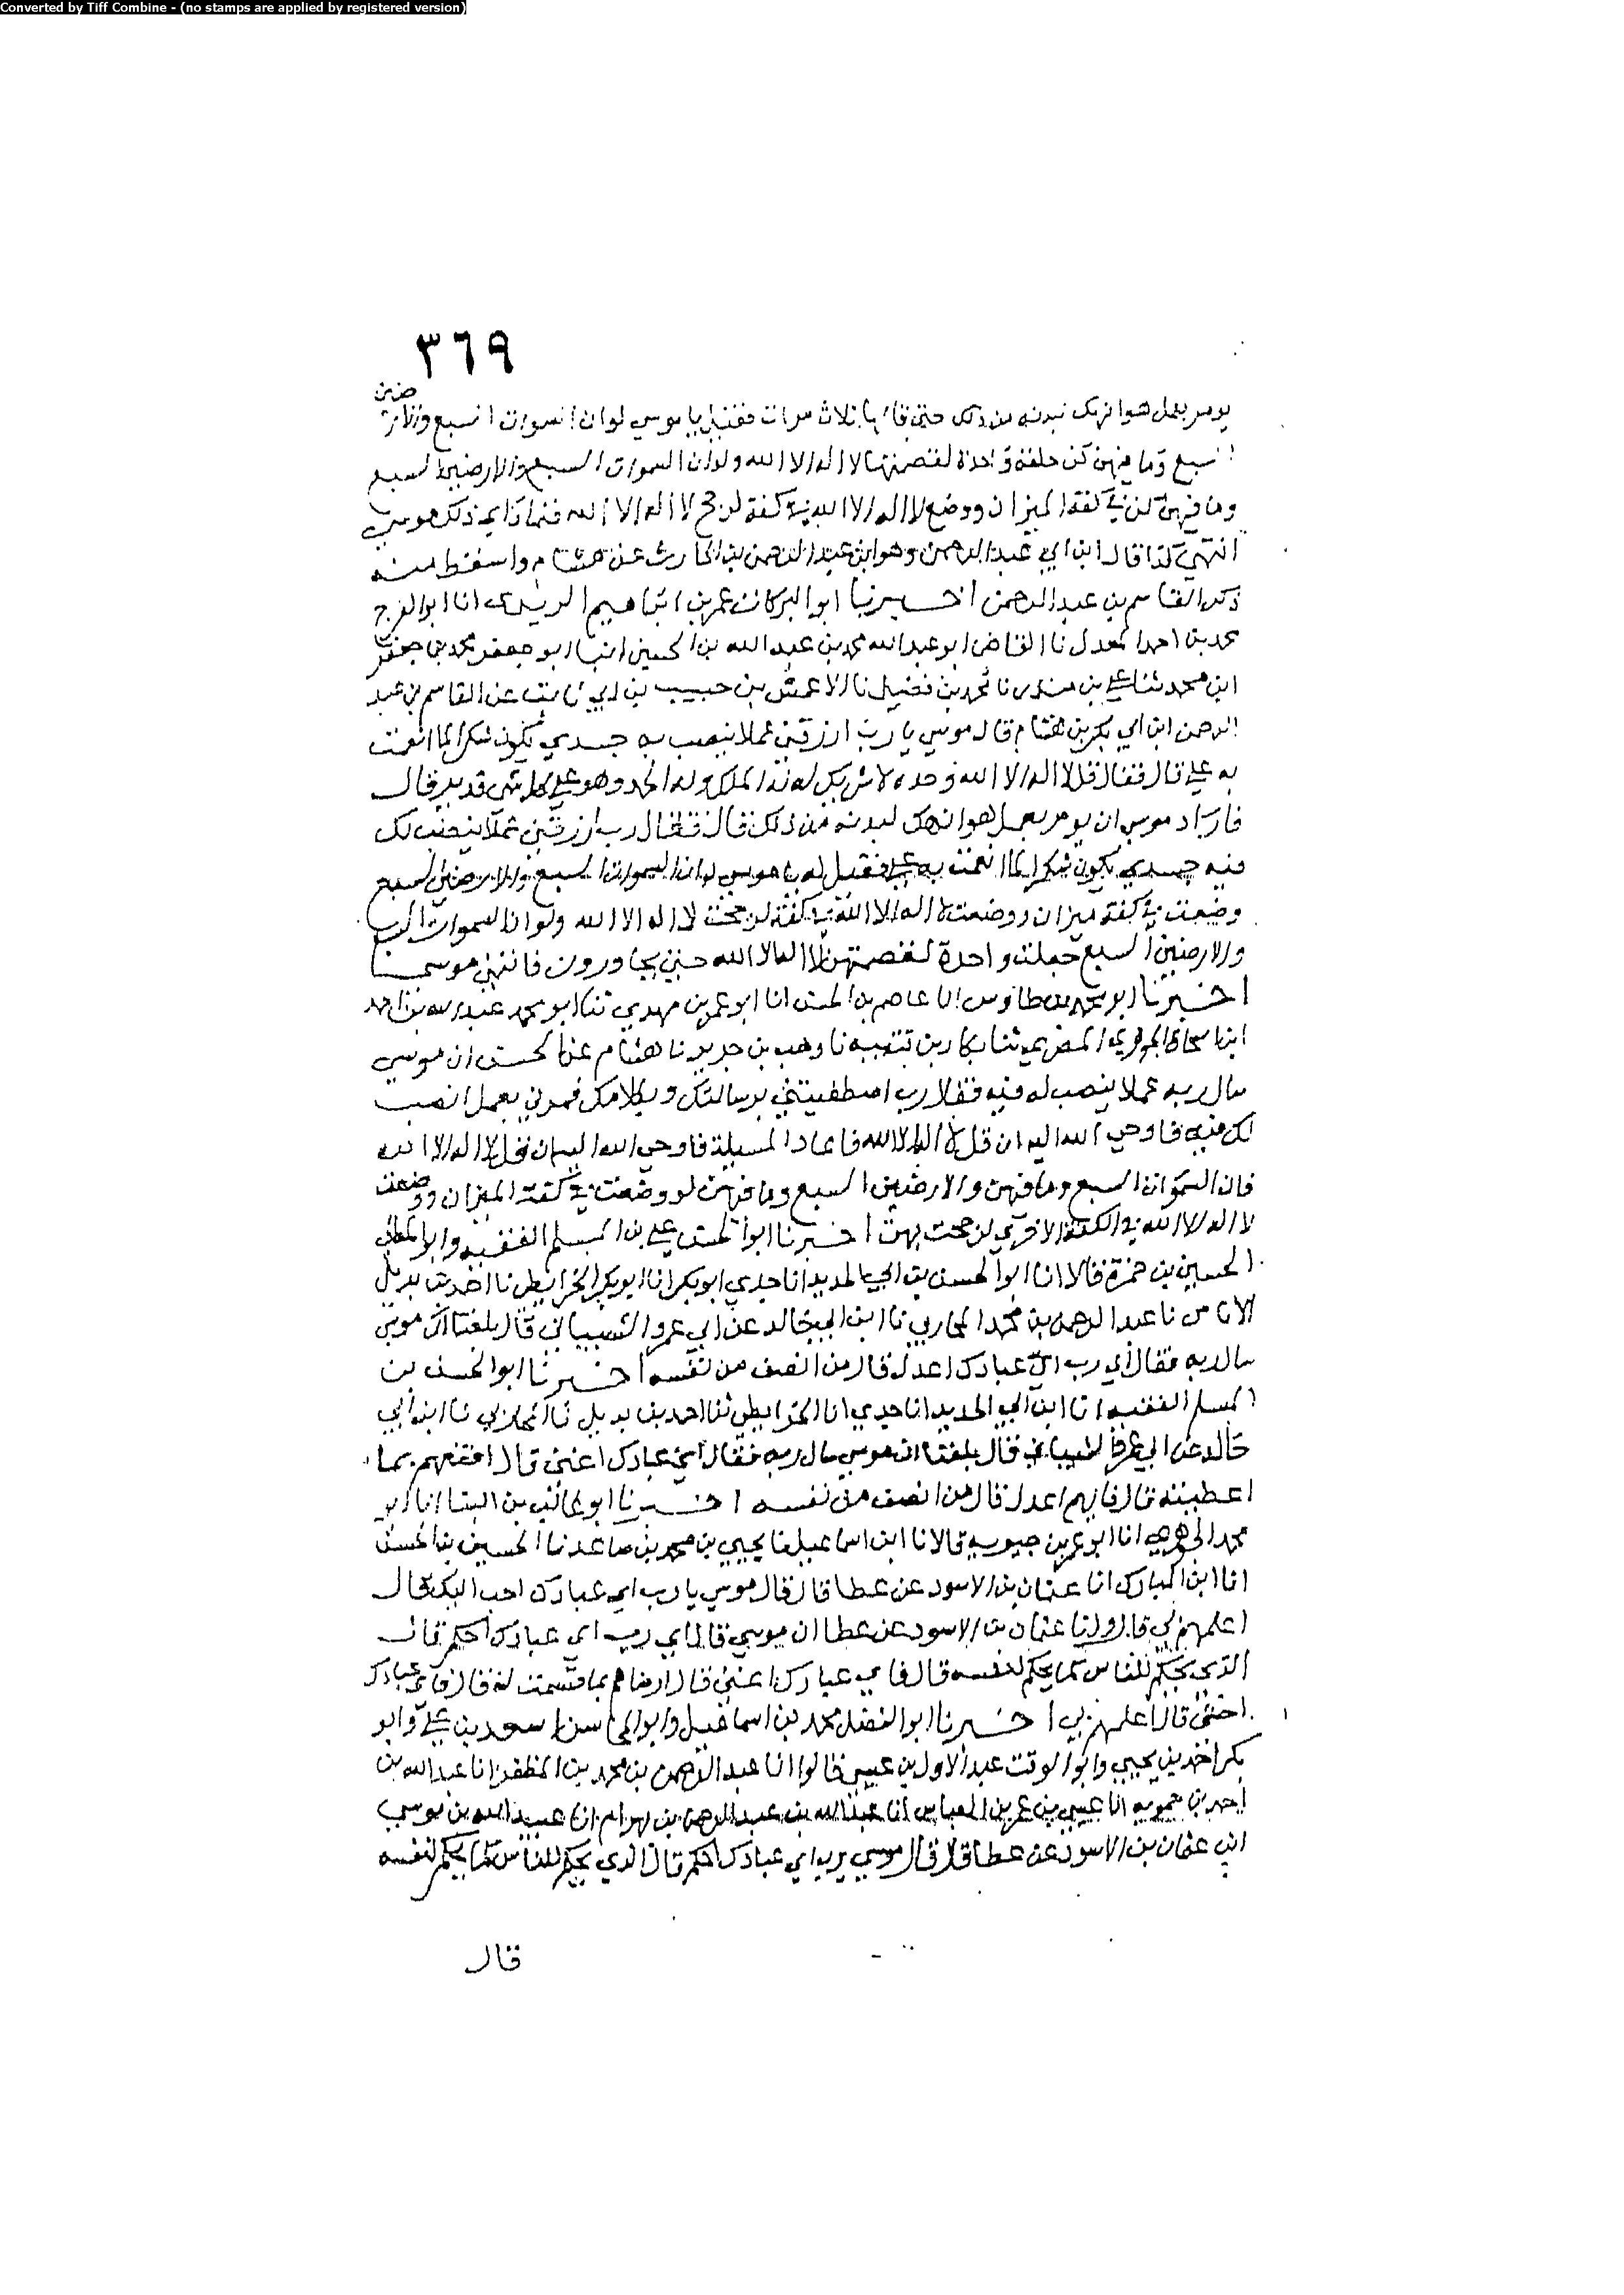 Converted by Tiff Combine - (no stamps are applied by registered version)
٣٦٩
ضين
يومر بعمل هو انهك لبدنه من ذلك حتى قالها ثلاث مرات فقيل يا موسى لو ان السموات السبع والار
السبع وما فيهن كن حلقة واحدة لقصمتها لا اله الا الله ولو ان السموات السبع والارضين السبع
وما فيهن كن في كفة الميزان ووضع لا اله الا الله في كفة لرجح لا اله الا الله فتمادى ذلك موسى
انتهى كذا قال ابن ابي عبد الرحمن وهو ابن عبد الرحمن بن الحارث عن هشام واسقط منه
ذكر القاسم بن عبد الرحمن اخبرنا ابو البركات عمر بن ابراهيم الزيدي انا ابو الفرج
محمد بن احمد المعدل نا القاضي ابو عبد الله محمد بن عبد الله بن الحسين انبا ابو جعفر محمد بن جعفر
ابن محمد ثنا علي بن منذر نا محمد بن فضيل نا الاعمش بن حبيب بن ابي ثابت عن القاسم بن عبد
الرحمن ابن ابي بكر بن هشام قال موسى يا رب ارزقني عملا ينصب به جسدي يكون شكرا لما انعمت
به علي قال فقال قل لا اله الا الله وحده لا شريك له له الملك وله الحمد وهو على كل شي قدير قال
فاراد موسى ان يومر بعمل هو انهك لبدنه من ذلك قال فقال رب ارزقني عملا ينصب لك
فيه جسدي يكون شكرا لما انعمت به علي فقيل له يا موسى لو ان السموات السبع والارضين السبع
وضعت في كفة ميزان ووضعت لا اله الا الله في كفة لرجحت لا اله الا الله ولو ان السموات السبع
والارضين السبع جعلت واحدة لقصمتهن لا اله الا الله حتى يجاورون فانتهى موسى
اخبرنا ابو محمد بن طاوس انا عاصم بن الحسن انا ابو عمر بن مهدي ثنا ابو محمد عبد الله بن احمد
ابن اسحاق الجوهري المصري ثنا بكار بن قتيبة نا وهب بن جرير نا هشام عن الحسن ان موسى
سال ربه عملا ينصب له فيه فقال رب اصطفيتني برسالتك وبكلامك فمرني بعمل انصب
لك فيه فاوحى الله اليه ان قل لا اله الا الله فاعاد المسيلة فاوحى الله اليه ان قل لا اله الا الله
فان السموات السبع وما فيهن والارضين السبع وما فيهن لو وضعت في كفة الميزان ووضعت
لا اله الا الله في الكفة الاخرى لرجحت بهن اخبرنا ابو الحسن علي بن المسلم الفقيه وابو المعالي
الحسين بن حمزة قالا انا ابو الحسن بن ابي الحديد انا جدي ابو بكر انا ابو بكر الخرايطي نا احمد بن بديل
الايامي نا عبد الرحمن بن محمد المحاربي نا ابن ابي خالد عن ابي عمرو الشيباني قال بلغنا ان موسى
سال ربه فقال أي رب اي عبادك اعدل قال من انصف من نفسه اخبرنا ابو الحسن بن
المسلم الفقيه انا ابن ابي الحديد انا جدي انا الخرايطي ثنا احمد بن بديل نا المحاربي نا ابن ابي
خالد عن ابي عمرو الشيباني قال بلغنا ان موسى سال ربه فقال اي عبادك اغنى قال اقنعهم بما
اعطيته قال فايهم اعدل قال من انصف من نفسه اخبرنا ابو غالب بن البنا انا ابو
محمد الجوهري انا ابو عمر بن حيويه قالا نا ابن اسماعيل نا يحيى بن محمد بن صاعد نا الحسين بن الحسن
انا ابن المبارك انا عثمان بن الاسود عن عطا قال قال موسى يا رب اي عبادك احب اليك قال
اعلمهم بي قال ونا عثمان بن الاسود عن عطا ان موسى قال اي رب اي عبادك احكم قال
الذي يحكم للناس كما يحكم لنفسه قال فاي عبادك اغنى قال ارضاهم بما قسمت له قال فاي عبادك
اخشى قال اعلمهم بي اخبرنا ابو الفضل محمد بن اسماعيل وابو المحاسن اسعد بن علي وابو
بكر احمد بن يحيى وابو الوقت عبد الاول بن عيسى قالوا انا عبد الرحمن بن محمد بن المظفر انا عبد الله بن
احمد بن حمويه انا عيسى بن عمر بن العباس انا عبد الله بن عبد الرحمن بن بهرام انا عبيد الله بن موسى
عن عثمان بن الاسود عن عطا قال قال موسى يرب اي عبادك احكم قال الذي يحكم للناس كما يحكم لنفسه
قال